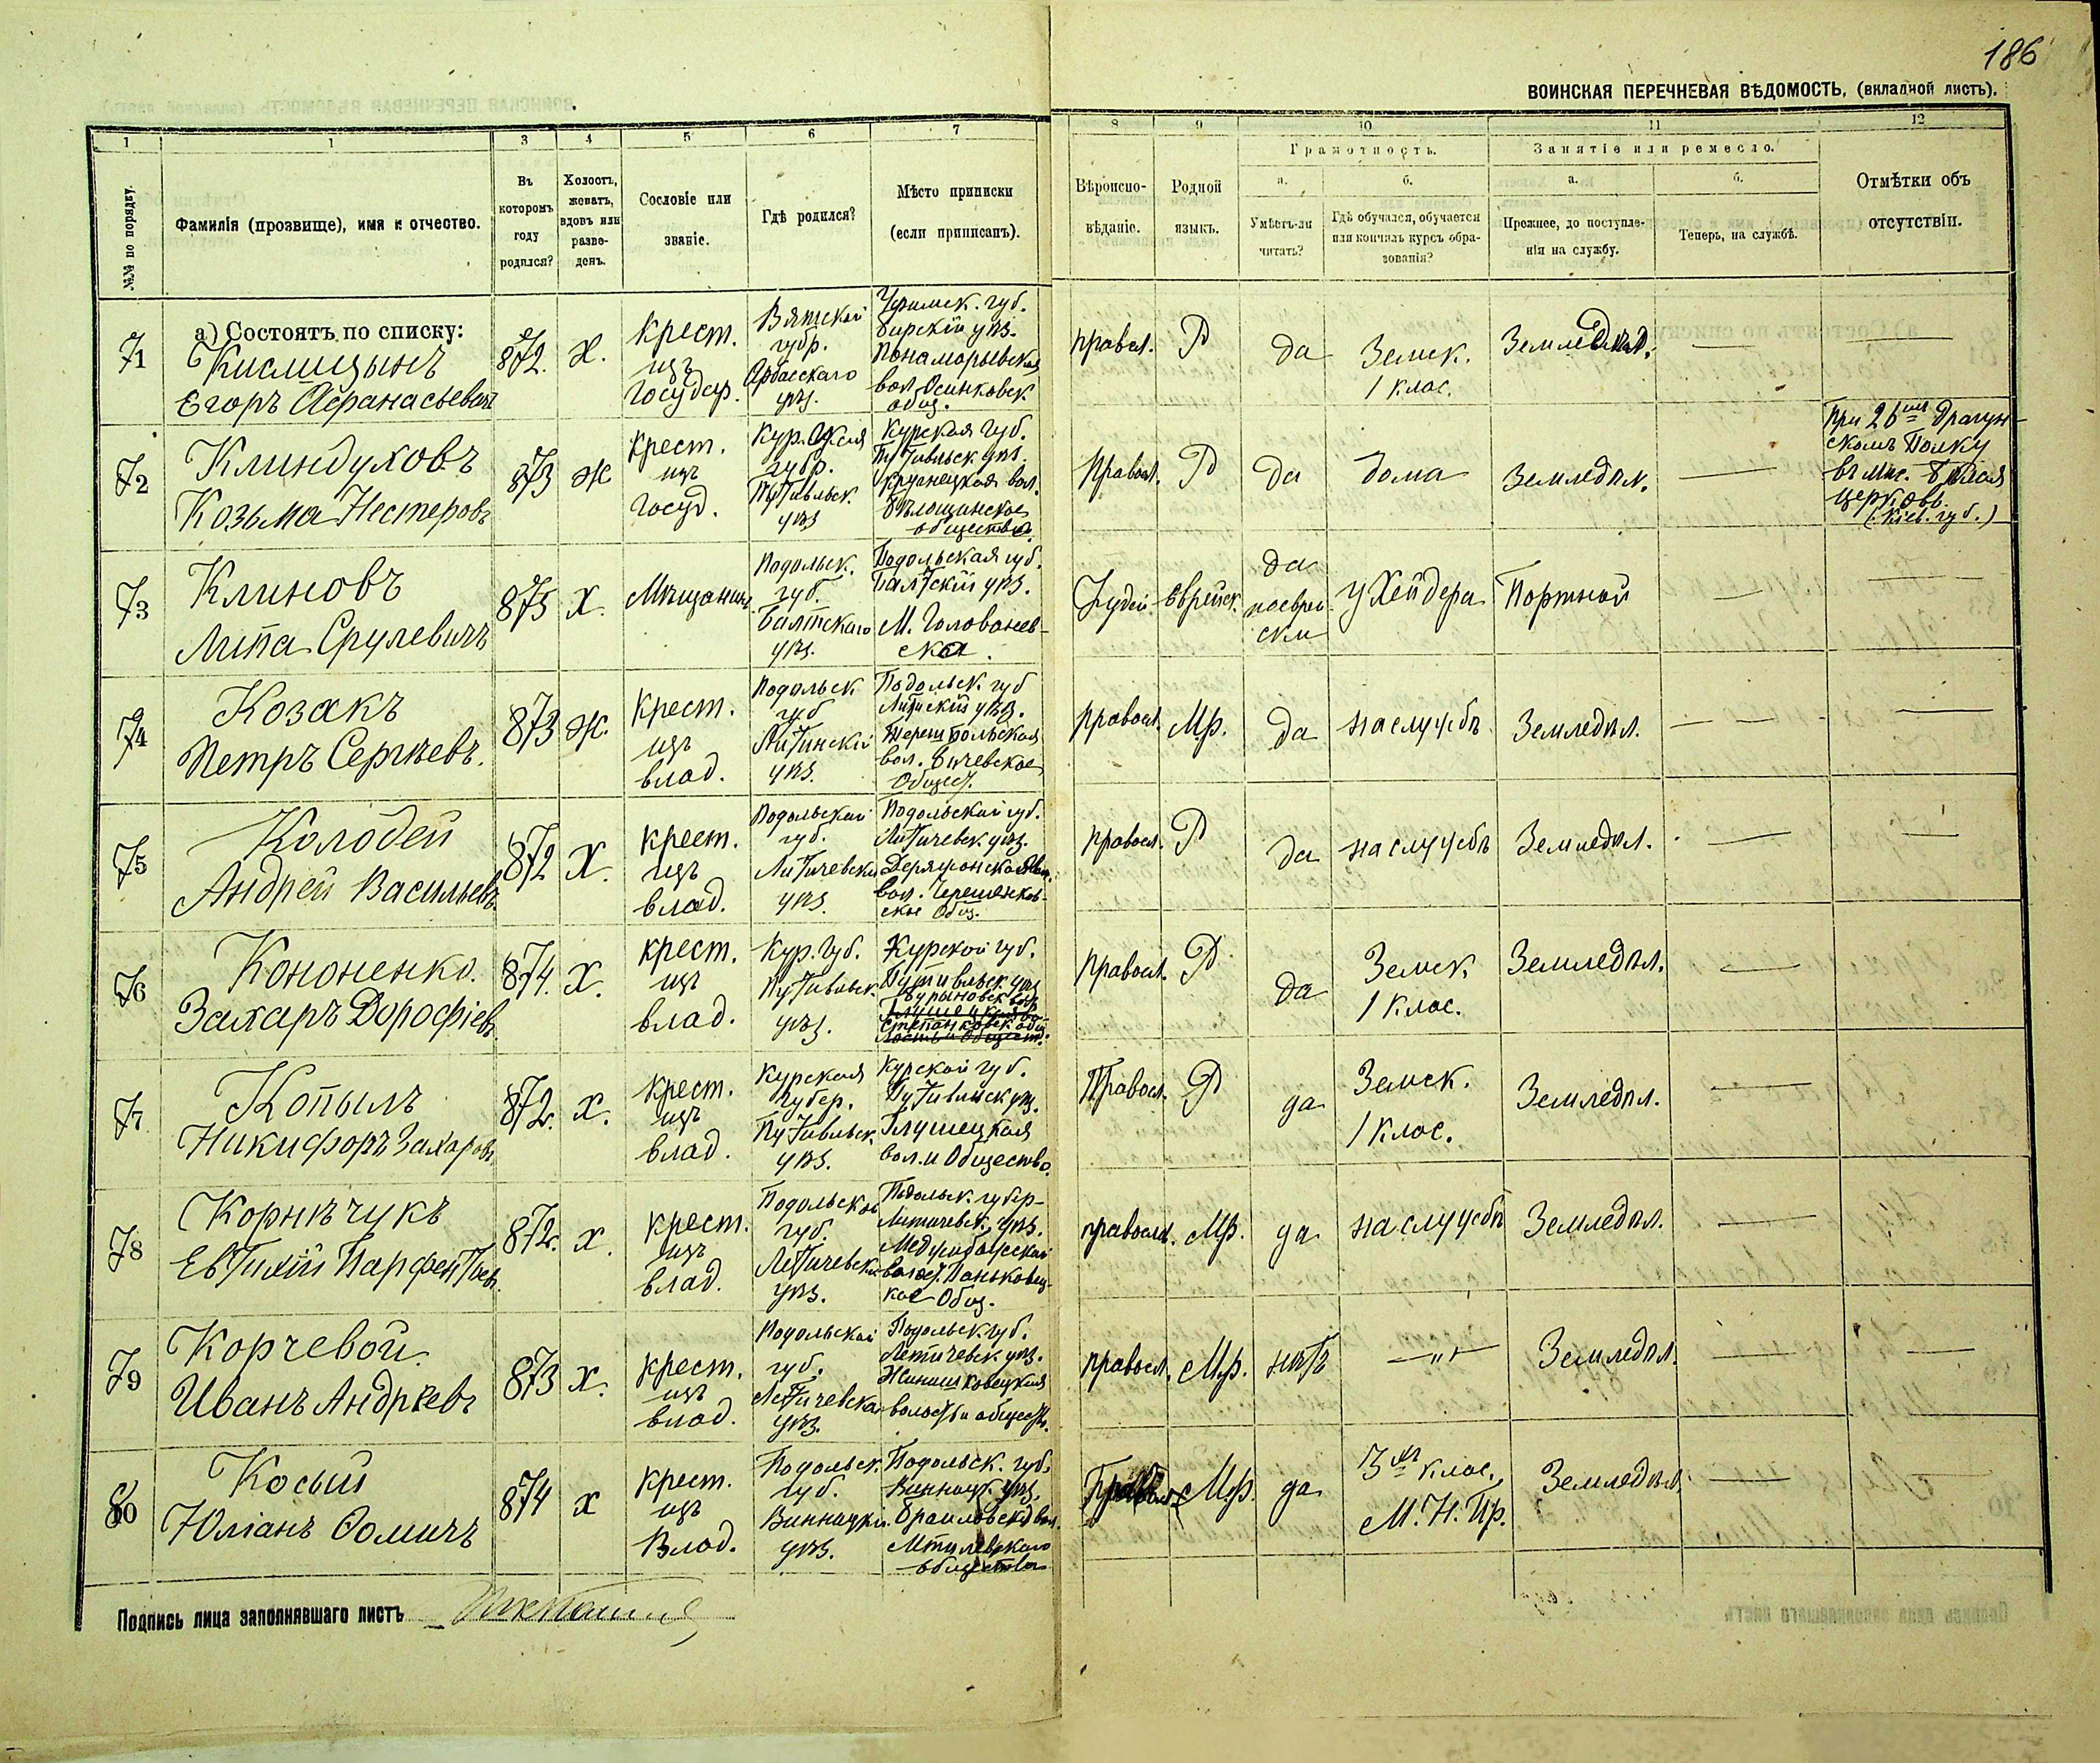 186
ВОИНСКАЯ ПЕРЕЧНЕВАЯ ВѢДОМОСТЬ, (вкладной листъ).
1 1 3 4 5 6 7 8 9 10 11 12
№№ по порядку.
Фамилія (прозвище), имя и отчество.
Въ которомъ году родился?
Холостъ, женатъ, вдовъ или разведенъ.
Сословіе или званіе.
Гдѣ родился?
Мѣсто приписки (если приписанъ).
Вѣроиспо-
вѣданіе.
Родной языкъ.
Грамотность.
а.
Умѣетъ-ли читать?
б.
Гдѣ обучался, обучается
или кончилъ курсъ обра-
зованія?
Занятіе или ремесло.
а.
Прежнее, до поступле-
нія на службу.
б.
Теперь, на службѣ.
Отмѣтки объ отсутствіи.
а) Состоятъ по списку:
71
Кислицынъ
Егоръ Афанасьевич
872.
Х.
крест.
изъ
государ.
Вятской
губр.
уѣз.
Уфимск. губ.
Бирскій уѣз.
вол. Осинковск
общ.
правсл.
Р
да
Земск.
1 клас.
Земледѣл.
72
Клиндуховъ
Козьма Нестеровъ
873
Ж
крест.
изъ
госуд.
Курская
губр.
Путивльск.
уѣз
Курская губ.
Путивльск. уѣз.
вол.
общество.
Правосл.
Р
да
дома
Земледѣл.
При 26мъ Драгун-
скомъ Полку
въ мѣс. Бѣлая
церковь.
(Кіев. губ.)
73
Клиновъ
Липа Срулевичъ
875
Х.
Мѣщанинъ
Подольск.
губ.
Балтскаго
уѣз.
Подольская губ.
Балтскій уѣз.
М. Голованев-
ска.
Іудей.
Еврейск.
да
поеврей-
ски
у Хейдера
Портной
74
Козакъ
Петръ Сергѣевъ.
873
Ж.
крест.
изъ
влад.
Подольск
губ
Литинскій
уѣз.
Подольск. губ
Литинскій уѣз.
вол.
Общес.
правосл.
Мр.
да
на службѣ
Земледѣл.
75
Колодей
Андрей Васильевъ.
872
Х.
крест.
изъ
влад.
Подольской
губ.
Летичевск
уѣз.
Подольской губ.
Летичевск. уѣз.
вол.
ское Общ.
правосл.
Р
да
на службѣ
Земледѣл.
76
Кононенко.
Захаръ Дорофіев.
874.
Х.
крест.
изъ
влад.
Кур. губ.
Путивльск.
уѣз.
Курской губ.
Путивльск. уѣз
правосл.
Р
да
Земск
1 клас.
Земледѣл.
77
Копылъ
Никифоръ Захаровъ
872.
Х.
крест.
изъ
влад.
Курская
губер.
Путивльск.
уѣз.
Курской губ.
Путивльск уѣз.
Глушецкая
вол. и Общество.
Правосл.
Р
да
Земск.
1 клас.
Земледѣл.
78
Корнѣчукъ
Евтихій Парфентьев.
872.
Х.
крест.
изъ
влад.
Подольской
губ.
Летичевск
уѣз.
Подольск. губер-
Летичевск. уѣз.
Меджибожской
волост. Паньковец-
кое Общ.
правосл.
Мр.
да
на службѣ
Земледѣл.
79
Корчевой.
Иванъ Андрѣевъ
873
Х.
крест.
изъ
влад.
Подольской
губ.
Летичевска
уѣз.
Подольск. губ.
Летичевск уѣз.
волость и обществ.
правосл.
Мр.
нѣтъ
—"—
Земледѣл.
80
Косый
Юліанъ Ѳомичъ
874
Х
крест.
изъ
Влад.
Подольск.
губ.
Винницкі.
уѣз.
Подольск. губ.
Винницк. уѣз.
Браиловской вол.
общества
Правосл.
Мр.
да
3хъ клас.
М. Н. Пр.
Земледѣл.
Подпись лица заполнявшаго листъ